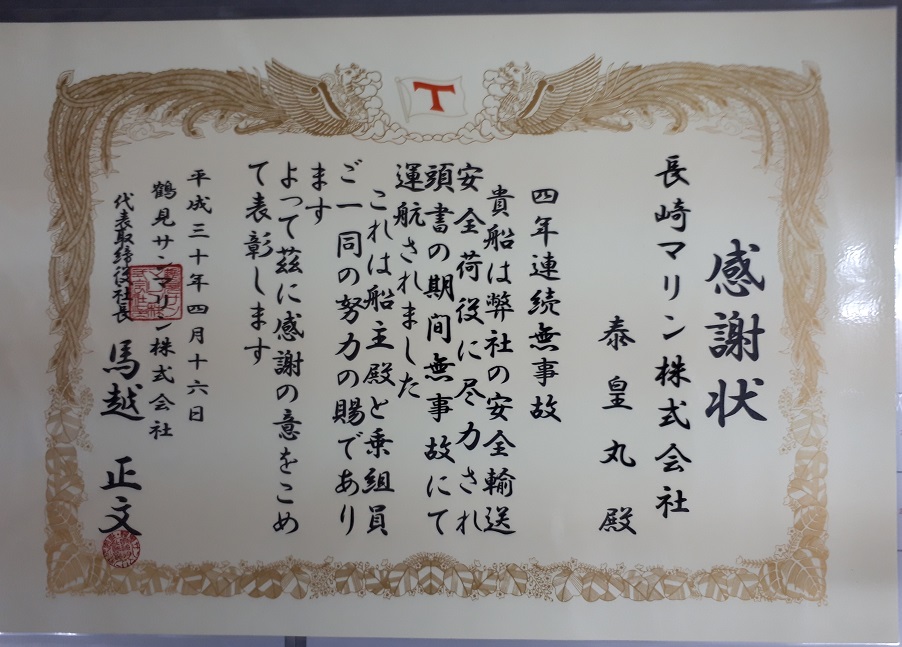 T
感謝状
長崎マリン株式会社
泰皇丸殿
四年連続無事故
貴船は弊社の安全輸送
安全荷役に尽力され
頭書の期間無事故にて
運航されました
これは船主殿と乗組員
ご一同の努力の賜であり
ます
よって茲に感謝の意をこめ
て表彰します
平成三十年四月十六日
鶴見サンマリン株式会社
代表取締役社長 馬越 正文